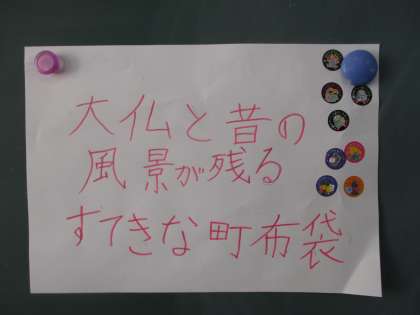 大仏と昔の
風景が残る
すてきな町布袋